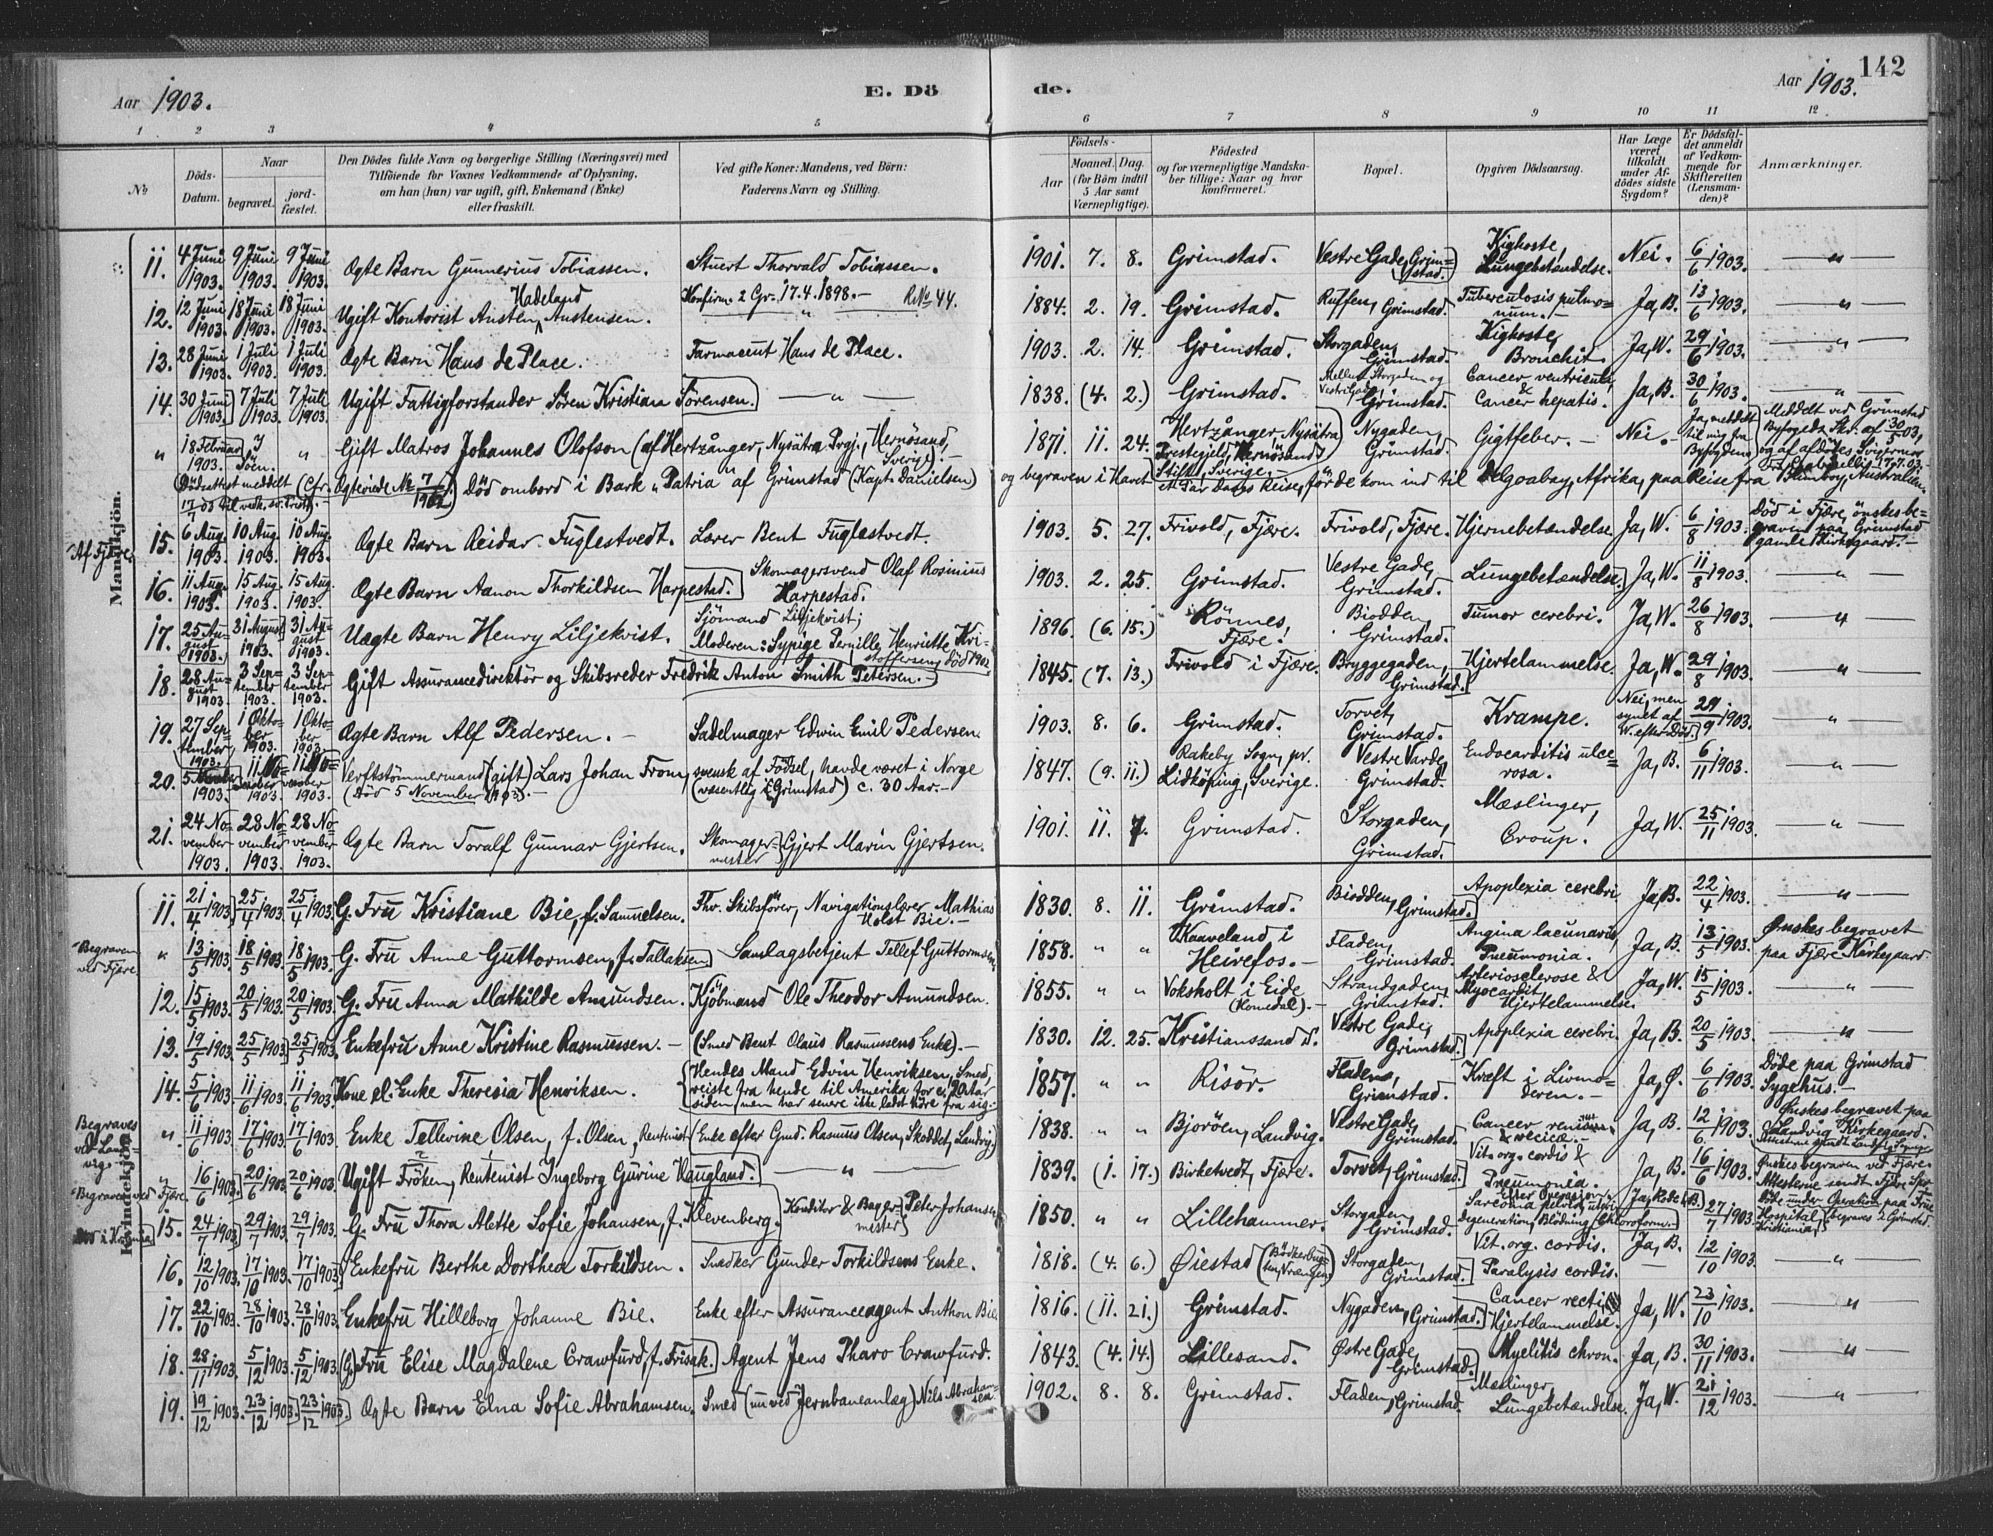 142
Aar 1903.
E. Dö
de.
Aar 1903.
1 2 3 4 5 6 7 8 9 10 11 12
No
Döds-Datum.
Naar
begravet.
jord-fæstet.
Den Dödes fulde Navn og borgerlige Stilling (Næringsvei) med
Tilföiende for Voxnes Vedkommende af Oplysning,
om han (hun) var ugift, gift, Enkemand (Enke)
eller fraskilt.
Ved gifte Koner: Mandens, ved Börn:
Faderens Navn og Stilling.
Födsels-
Aar
Maaned.
Dag.
(for Börn indtil
5 Aar samt
Værnepligtige).
Födested
og for værnepligtige Mandska-
ber tillige: Naar og hvor
konfirmeret.
Bopæl.
Opgiven Dödsaarsag.
Har Læge
været
tilkaldt
under Af-
dödes sidste
Sygdom?
Er Dödsfal-
det anmeldt
af Vedkom-
mende for
Skifteretten
(Lensman-
den)?
Anmærkninger.
Mandkjön.
11. 4 Juni 1903. 9 Juni 1903. 9 Juni 1903. Ægte Barn Gunnerius Tobiassen. Stuert Thorvald Tobiassen. 1901. 7. 8. Grimstad. Vestre Gade, Grimstad. Kighoste, Lungebetændelse. Nei. 6/6 1903. — " —
12. 12 Juni 1903. 18 Juni 1903. 18 Juni 1903. Ugift Kontorist Austen Hadeland Austensen. Konfirm. 2 Gr. 17.4.1898.— R.No 44. 1884. 2. 19. Grimstad. Ruffen, Grimstad. Tuberculosis pulmonum. Ja, B. 13/6 1903. — " —
13. 28 Juni 1903. 1 Juli 1903. 1 Juli 1903. Ægte Barn Hans de Place. Farmaceut Hans de Place. 1903. 2. 14. Grimstad. Storgaden, Grimstad. Kighoste, Bronchit. Ja, W. 29/6 1903. — " —
14. 30 Juni 1903. 7 Juli 1903. 7 Juli 1903. Ugift Fattigforstander Sören Kristian Sörensen. — " — 1838. (4. 2.) Grimstad. Mellem Storgaden og Vestre Gade, Grimstad. Cancer ventriculi & Cancer hepatis. Ja, B. 30/6 1903. — " —
" 18 Februar 1903. I Söen. " Gift Matros Johannes Olofson (af Hertzånger, Nysätra Prgj., Hernösand, Sverige) — 1871. 11. 24. Hertzånger, Nysätra Prestegjeld, Hernösand Stift, Sverige. — Nygaden, Grimstad. Gigtfeber. — Nei. — Ja, meddelt til mig fra Byfogden. Meddelt ved Grimstad Byfogeds Skr. af 30/5 03,
Dödsattest meddelt (Cfr. Ægteviede No 7/1902). Död ombord i Bark „Patria" af Grimstad (Kapt. Danielsen) og begraven i Havet et Par Dages Reise, för de kom ind til Delgoabay, Afrika, paa Reise fra Bumbry, Australien.
Af Fjære
15. 6 Aug. 1903. 10 Aug. 1903. 10 Aug. 1903. Ægte Barn Reidar Fuglestvedt. Lærer Bent Fuglestvedt. 1903. 5. 27. Frivold, Fjære. Frivold, Fjære. Hjernebetændelse. Ja, W. 6/8 1903. Död i Fjære, önskes begraven paa Grimstad gamle Kirkegaard.—
16. 11 Aug. 1903. 15 Aug. 1903. 15 Aug. 1903. Ægte Barn Aanon Thorkildsen Harpestad. Skomagersvend Olaf Rosinius Harpestad. 1903. 2. 25. Grimstad. Vestre Gade, Grimstad. Lungebetændelse. Ja, W. 11/8 1903. — " —
17. 25 August 1903. 31 August 1903. 31 August 1903. Uægte Barn Henry Liljekvist. Sjömand Liljekvist; Moderen: Sypige Pernille Henriette Kristoffersen, död 1902 1896. (6. 15.) Rönnes, Fjære. Biodden, Grimstad. Tumor cerebri. Ja, W. 26/8 1903. — " —
18. 28 August 1903. 3 September 1903. 3 September 1903. Gift Assurancedirektör og Skibsreder Fredrik Anton Smith Petersen.— 1845. (7. 13.) Frivold i Fjære. Bryggegaden, Grimstad. Hjertelammelse. Ja, W. 29/8 1903. — " —
19. 27 September 1903. 1 Oktober 1903. 1 Oktober 1903. Ægte Barn Alf Pedersen. — Sadelmager Edwin Emil Pedersen. 1903. 8. 6. Grimstad. Torvet, Grimstad. Krampe. Nei, men synet af W. efter Död. 29/9 1903. — " —
20. 5 November 1903. 11 November 1903. 11 November 1903. Verftstömmermand (gift) Lars Johan From, svensk af Födsel, havde været i Norge (væsentlig i Grimstad) c. 30 Aar.— (Död 5 November 1903).— 1847. (9. 11.) Rakeby Sogn, pr. Lidköping, Sverige. Vestre Varde, Grimstad. Endocarditis ulcerosa. Ja, B. 6/11 1903. — " —
21. 24 November 1903. 28 November 1903. 28 November 1903. Ægte Barn Toralf Gunnar Gjertsen. Skomagermester Gjert Marin Gjertsen. 1901. 11. 7. Grimstad. Storgaden, Grimstad. Mæslinger, Croup. Ja, W. 25/11 1903. — " —
Kvindekjön.
11. 21/4 1903. 25/4 1903. 25/4 1903. G. Fru Kristiane Bie, f. Samuelsen. Fhv. Skibsförer, Navigationslærer Mathias Holst Bie.— 1830. 8. 11. Grimstad. Biodden, Grimstad. Apoplexia cerebri. Ja, B. 22/4 1903. — " —
Begraven ved Fjære
" 13/5 1903. 18/5 1903. 18/5 1903. G. Fru Anne Guttormsen, f. Tallaksen. Samlagsbetjent Tellef Guttormsen. 1858. " " Kaaveland i Heirefos.— Fladen, Grimstad. Angina lacunaris, Pneumonia. Ja, B. 13/5 1903. Ønskes begravet paa Fjære Kirkegaard.
12. 15/5 1903. 20/5 1903. 20/5 1903. G. Fru Anna Mathilde Amundsen. Kjöbmand Ole Theodor Amundsen. 1855. " " Voksholt i Eide (Homedal).— Strandgaden, Grimstad. Arteriosclerose & Myocardit, Hjertelammelse. Ja, W. 15/5 1903. — " —
13. 19/5 1903. 25/5 1903. 25/5 1903. Enkefru Anne Kristine Rasmussen. — (Smed Bent Olaus Rasmussens Enke).— 1830. 12. 25. Kristianssand S. Vestre Gade, Grimstad. Apoplexia cerebri. Ja, B. 20/5 1903. — " —
14. 5/6 1903. 11/6 1903. 11/6 1903. Kone el. Enke Theresia Henriksen. Hendes Mand Edvin Henriksen, Smed, reiste fra hende til Amerika for c. 20 Aar siden, men har senere ikke ladet höre fra sig.— 1857. " " Risör. Fladen, Grimstad. Kræft i Livmoderen.— Ja, Ø. 6/6 1903. Döde paa Grimstad Sygehus.—
Begraves ved Landvig.
" 11/6 1903. 17/6 1903. 17/6 1903. Enke Tellevine Olsen, f. Olsen, Rentenist (Enke efter Gmd. Rasmus Olsen, Skoddet, Landvig) 1838. " " Bjoröen, Landvig. Vestre Gade, Grimstad. Cancer & Ja, B. 12/6 1903. Ønskes begravet paa Landvig Kirkegaard.
Begraven ved Fjære.
" 16/6 1903. 20/6 1903. 20/6 1903. Ugift Fröken, Rentenist Ingeborg Gurine Haugland. — " — 1839. (1. 17.) Birketvedt, Fjære. Torvet, Grimstad. Vit. org. cordis & Pneumonia. Ja, B. 16/6 1903. Ønskes begraven ved Fjære. Attesterne sendt Fjære
15. 24/7 1903. 29/7 1903. 29/7 1903. G. Fru Thora Alette Sofie Johansen, f. Klevenberg. Konditor & Bagermester Peter Johansen 1850. " " Lillehammer. Storgaden, Grimstad. Sarcoma pelvis, degeneration, Blödning 27/7 1903. Döde under Operation paa Hospital, Kristiania, begraves i Grimstad.
16. 12/10 1903. 17/10 1903. 17/10 1903. Enkefru Berthe Dorthea Torkildsen. Snedker Gunder Torkildsens Enke. 1818. (4. 6.) Øiestad Storgaden, Grimstad. Vit. org. cordis. Paralysis cordis. Ja, B. 12/10 1903. — " —
17. 22/10 1903. 28/10 1903. 28/10 1903. Enkefru Hilleborg Johanne Bie. Enke efter Assuranceagent Anthon Bie 1816. (11. 21.) Grimstad. Nygaden, Grimstad. Cancer recti Hjertelammelse. Ja, W. 23/10 1903. — " —
18. 28/11 1903. 5/12 1903. 5/12 1903. (G.) Fru Elise Magdalene Crawfurd, f. Frisak. Agent Jens Pharo Crawfurd. 1843. (4. 14.) Lillesand. Østre Gade, Grimstad. Myelitis chron. Ja, B. 30/11 1903. — " —
19. 19/12 1903. 23/12 1903. 23/12 1903. Ægte Barn Elna Sofie Abrahamsen. Smed (nu ved Jernbaneanlæg) Nils Abrahamsen 1902. 8. 8. Grimstad. Fladen, Grimstad. Mæslinger, Lungebetændelse. Ja, W. 21/12 1903. "